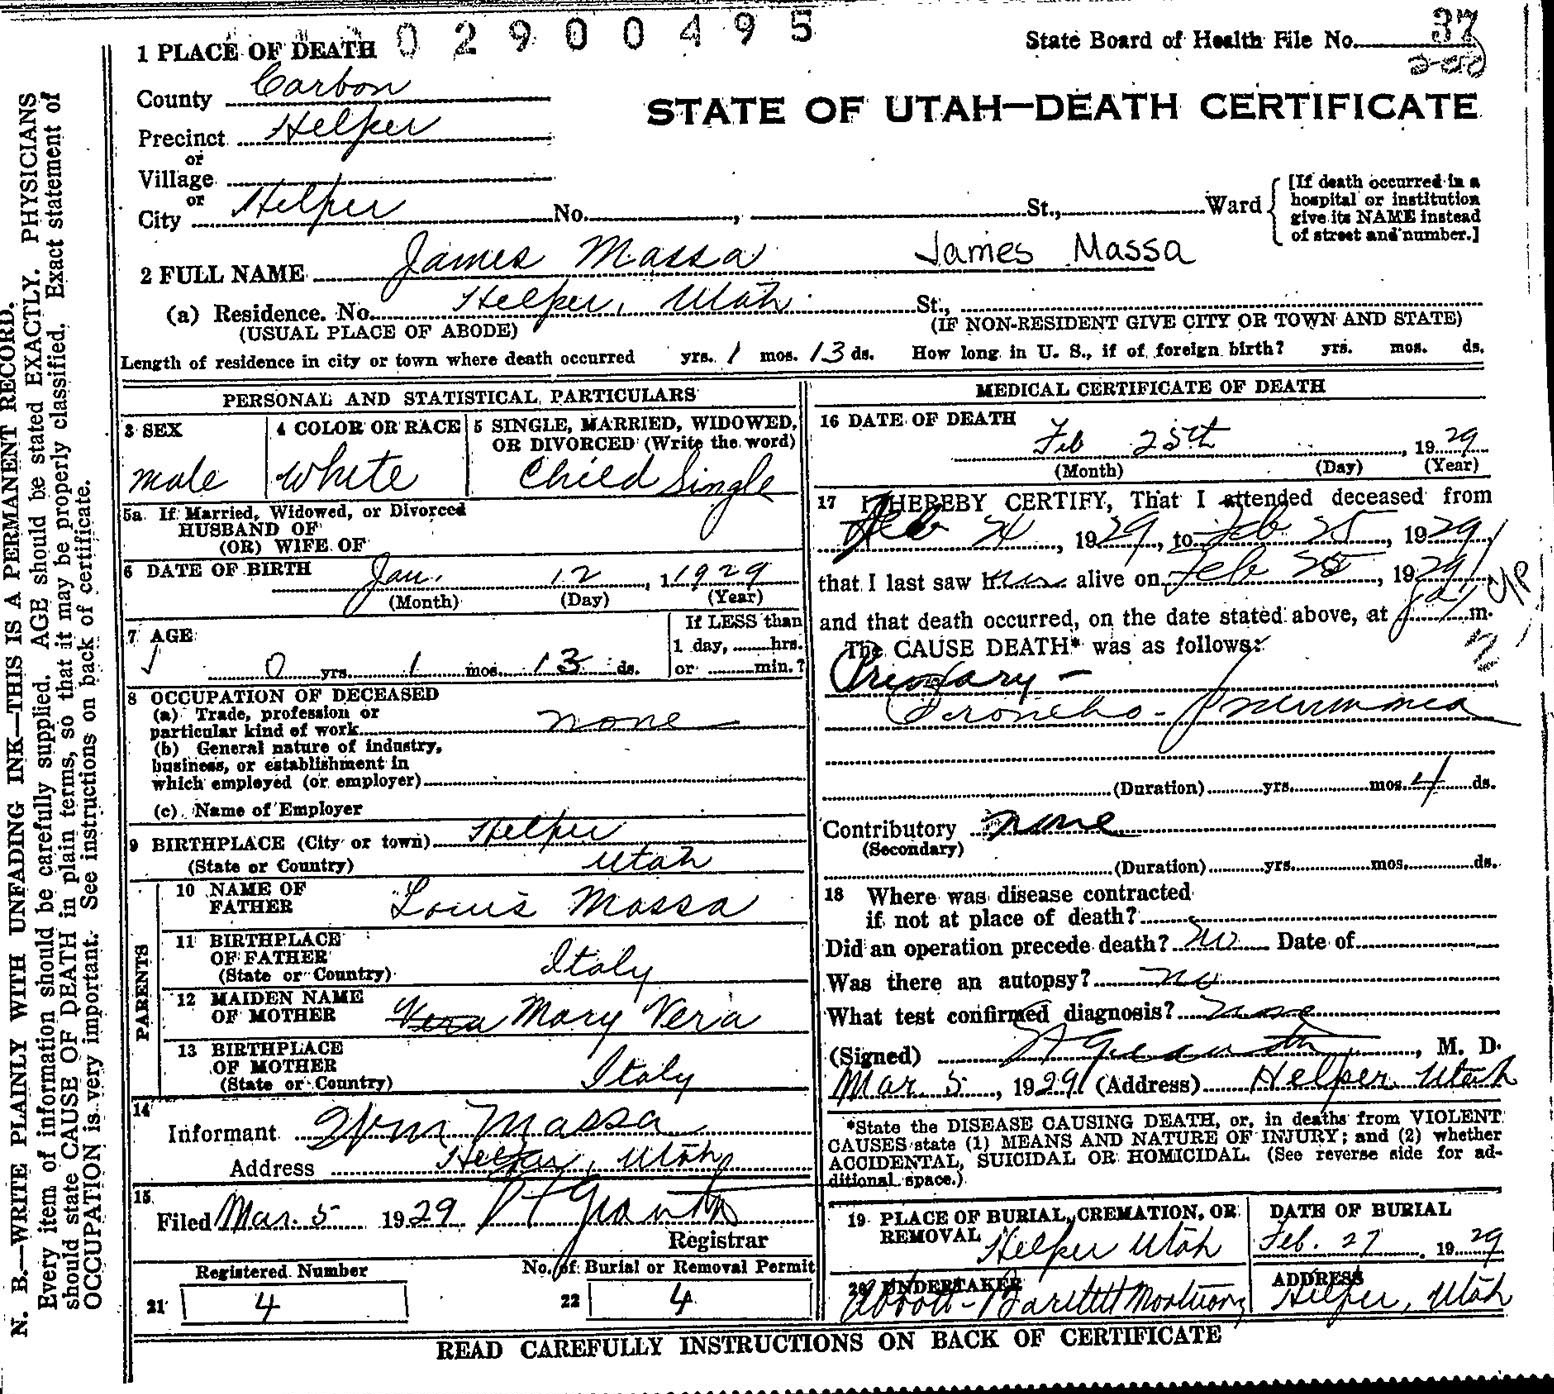 02900495
State Board of Health File No. 37
STATE OF UTAH—DEATH CERTIFICATE
1 PLACE OF DEATH
County Carbon
Precinct Helper
or
Village
or
City Helper No. , St., Ward
[If death occurred in a
hospital or institution
give its NAME instead
of street and number.]
2 FULL NAME James Massa James Massa
(a) Residence. No. Helper, Utah. St.,
(USUAL PLACE OF ABODE) (IF NON-RESIDENT GIVE CITY OR TOWN AND STATE)
Length of residence in city or town where death occurred yrs. 1 mos. 13 ds. How long in U. S., if of foreign birth? yrs. mos. ds.
PERSONAL AND STATISTICAL PARTICULARS
3 SEX
male
4 COLOR OR RACE
White
5 SINGLE, MARRIED, WIDOWED,
OR DIVORCED (Write the word)
Child Single
5a If Married, Widowed, or Divorced
HUSBAND OF
(OR) WIFE OF
6 DATE OF BIRTH Jan. 12, 1 1929
(Month) (Day) (Year)
7 AGE
0 yrs. 1 mos. 13 ds.
If LESS than
1 day, hrs.
or min.?
8 OCCUPATION OF DECEASED
(a) Trade, profession or
particular kind of work none
(b) General nature of industry,
business, or establishment in
which employed (or employer)
(c) Name of Employer
9 BIRTHPLACE (City or town) Helper
(State or Country) Utah
PARENTS
10 NAME OF
FATHER Louis Massa
11 BIRTHPLACE
OF FATHER
(State or Country) Italy
12 MAIDEN NAME
OF MOTHER Vera Mary Vera
13 BIRTHPLACE
OF MOTHER
(State or Country) Italy
14
Informant Wm Massa
Address Helper, Utah
15
Filed Mar. 5 1929
Registrar
Registered Number
21 4
No. of Burial or Removal Permit
22 4
MEDICAL CERTIFICATE OF DEATH
16 DATE OF DEATH
Feb 25th, 1929
(Month) (Day) (Year)
17 I HEREBY CERTIFY, That I attended deceased from
Feb 24, 1929, to Feb 25, 1929,
that I last saw him alive on Feb 25, 1929,
and that death occurred, on the date stated above, at m.
The CAUSE DEATH* was as follows:
Primary -
Broncho-Pneumonia
(Duration) yrs. mos. 4 ds.
Contributory none
(Secondary)
(Duration) yrs. mos. ds.
18 Where was disease contracted
if not at place of death?
Did an operation precede death? no Date of
Was there an autopsy? no
What test confirmed diagnosis? none
(Signed) , M. D.
Mar. 5, 1929 (Address) Helper, Utah
*State the DISEASE CAUSING DEATH, or, in deaths from VIOLENT
CAUSES state (1) MEANS AND NATURE OF INJURY; and (2) whether
ACCIDENTAL, SUICIDAL OR HOMICIDAL. (See reverse side for ad-
ditional space.)
19 PLACE OF BURIAL, CREMATION, OR
REMOVAL Helper Utah
DATE OF BURIAL
Feb. 27, 1929
20 UNDERTAKER
Bartlett Mortuary
ADDRESS
Helper, Utah
READ CAREFULLY INSTRUCTIONS ON BACK OF CERTIFICATE
N. B.—WRITE PLAINLY WITH UNFADING INK—THIS IS A PERMANENT RECORD.
Every item of information should be carefully supplied. AGE should be stated EXACTLY. PHYSICIANS
should state CAUSE OF DEATH in plain terms, so that it may be properly classified. Exact statement of
OCCUPATION is very important. See instructions on back of certificate.